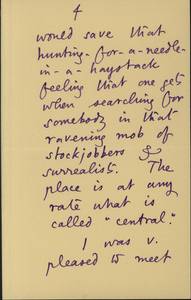 4
would save that
hunting-for-a-needle-
in-a-haystack
feeling that one gets
when searching for
somebody in that
ravening mob of
stockjobbers &
surrealists. The
place is at any
rate what is
called "central."
I was v.
pleased to meet